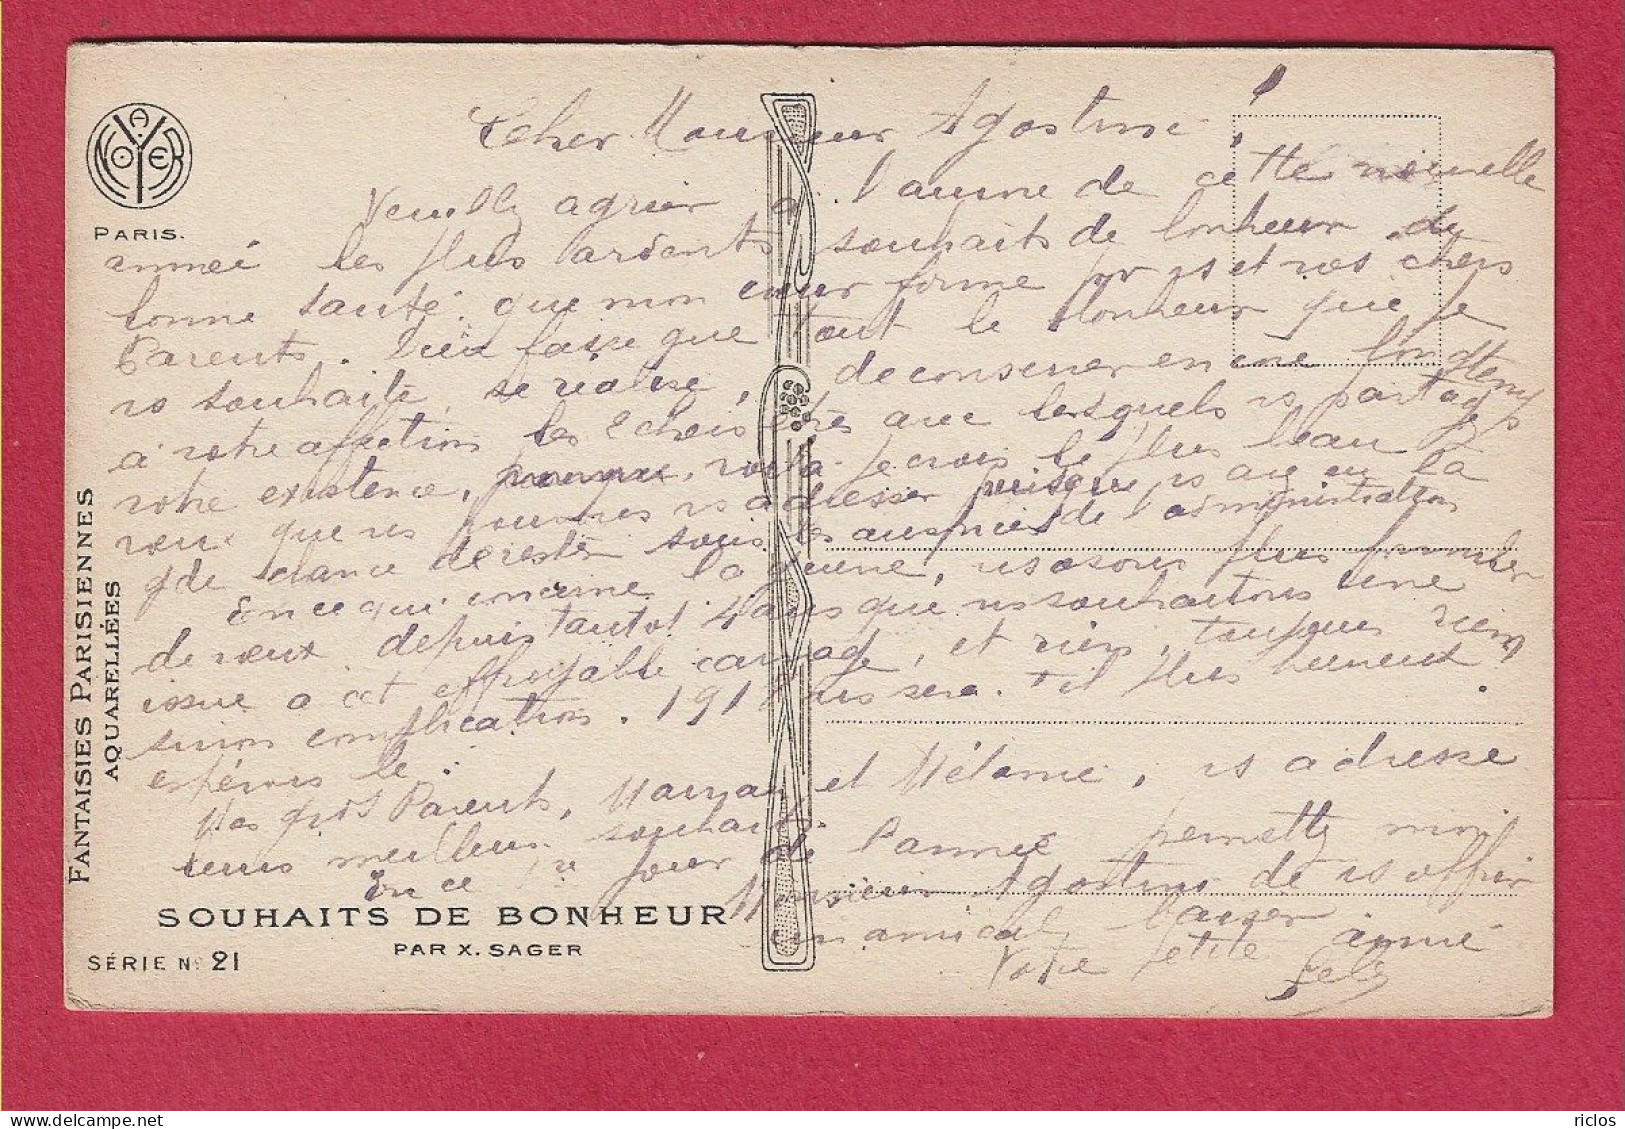 A. NOYER
PARIS.
Cher Monsieur Agostini
Veuillez agréer à l'aurore de cette nouvelle
année les plus ardents souhaits de bonheur de
bonne santé que mon cœur forme pr vs et vos chers
Parents. Dieu fasse que tout le bonheur que je
vs souhaite se réalise, de conserver encore longtemps
à votre affection les chers êtres avec lesquels vs partagez
votre existence, voilà je crois le plus beau
vœu que ns pouvons vs adresser puisque vs avez eu la
gde chance de rester sous les auspices de l'administration
En ce qui concerne la guerre, ns osons plus formuler
de vœux depuis tantot 4 ans que ns souhaitons une
issue à cet effroyable carnage, et rien, toujours rien
sinon complication. 191 sera-t-il plus heureux
espérons le.
Mes gds Parents, Maman et Mélanie, vs adresse
leurs meilleurs souhaits
En ce jour de l'année permettez moi
Monsieur Agostini de vs offrir
un amical baiser
Votre petite amie
FANTAISIES PARISIENNES
AQUARELLÉES
SOUHAITS DE BONHEUR
PAR X. SAGER
SÉRIE No 21
riclos